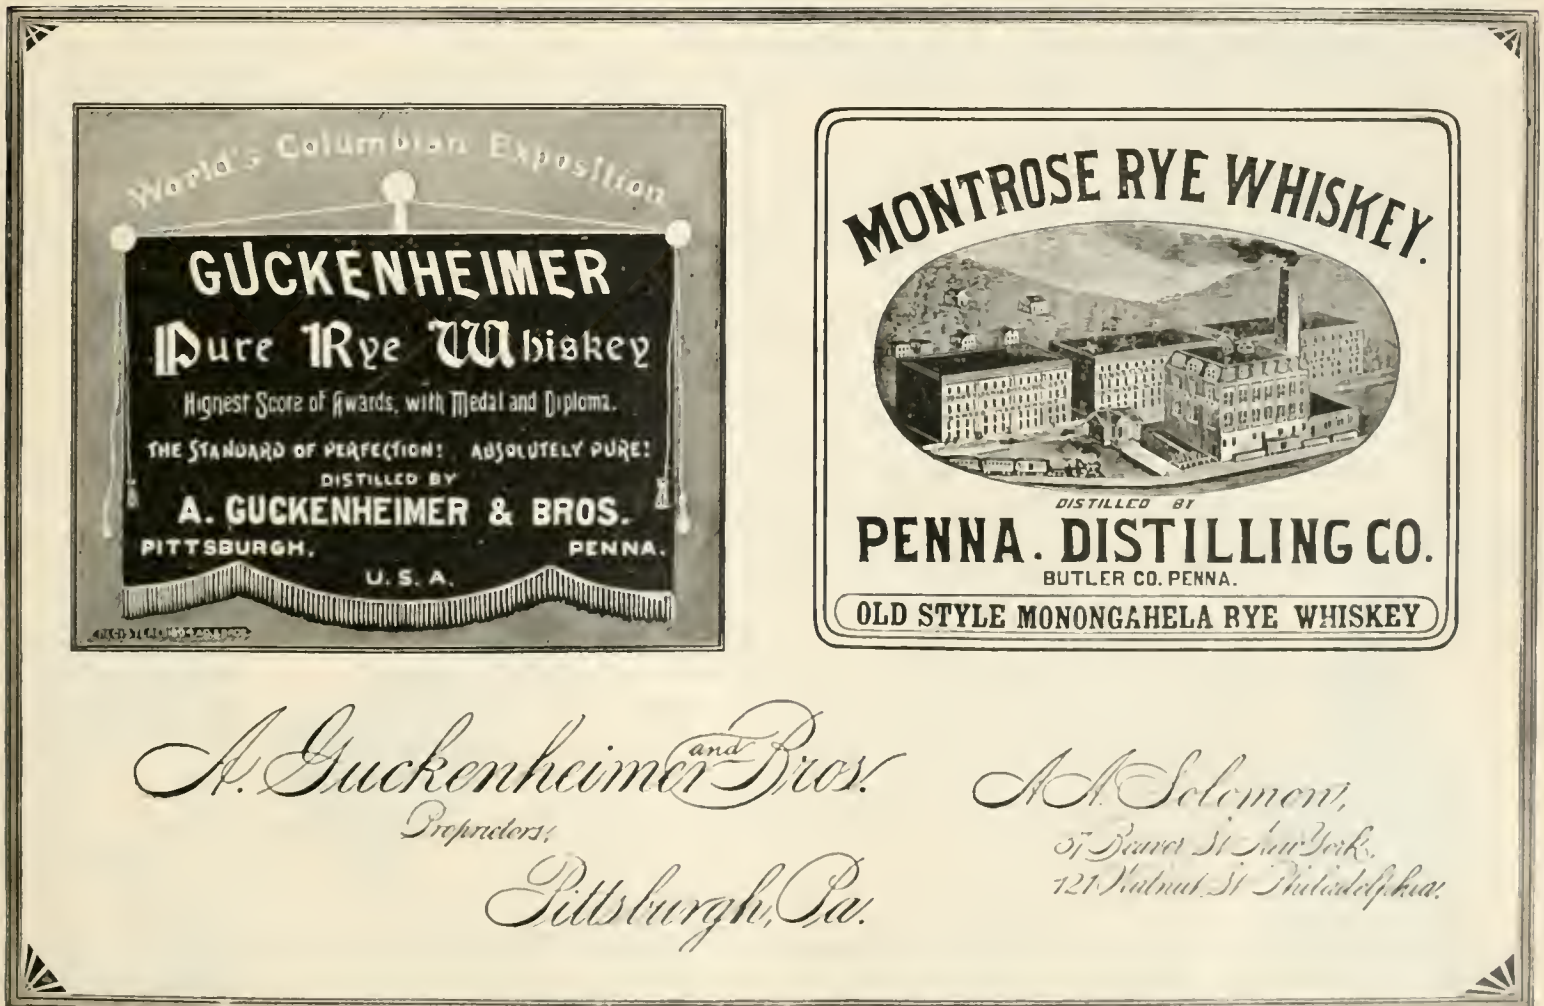 World's Columbian Exposition
GUCKENHEIMER
Pure Rye Whiskey
Highest Score of Awards, with Medal and Diploma.
THE STANDARD OF PERFECTION! ABSOLUTELY PURE!
DISTILLED BY
A. GUCKENHEIMER & BROS.
PITTSBURGH, PENNA.
U.S.A.
MONTROSE RYE WHISKEY.
DISTILLED BY
PENNA. DISTILLING CO.
BUTLER CO. PENNA.
OLD STYLE MONONGAHELA RYE WHISKEY
A. Guckenheimer and Bros.
Proprietors,
Pittsburgh, Pa.
A. A. Solomon,
Beaver St New York.
121 Walnut St Philadelphia.